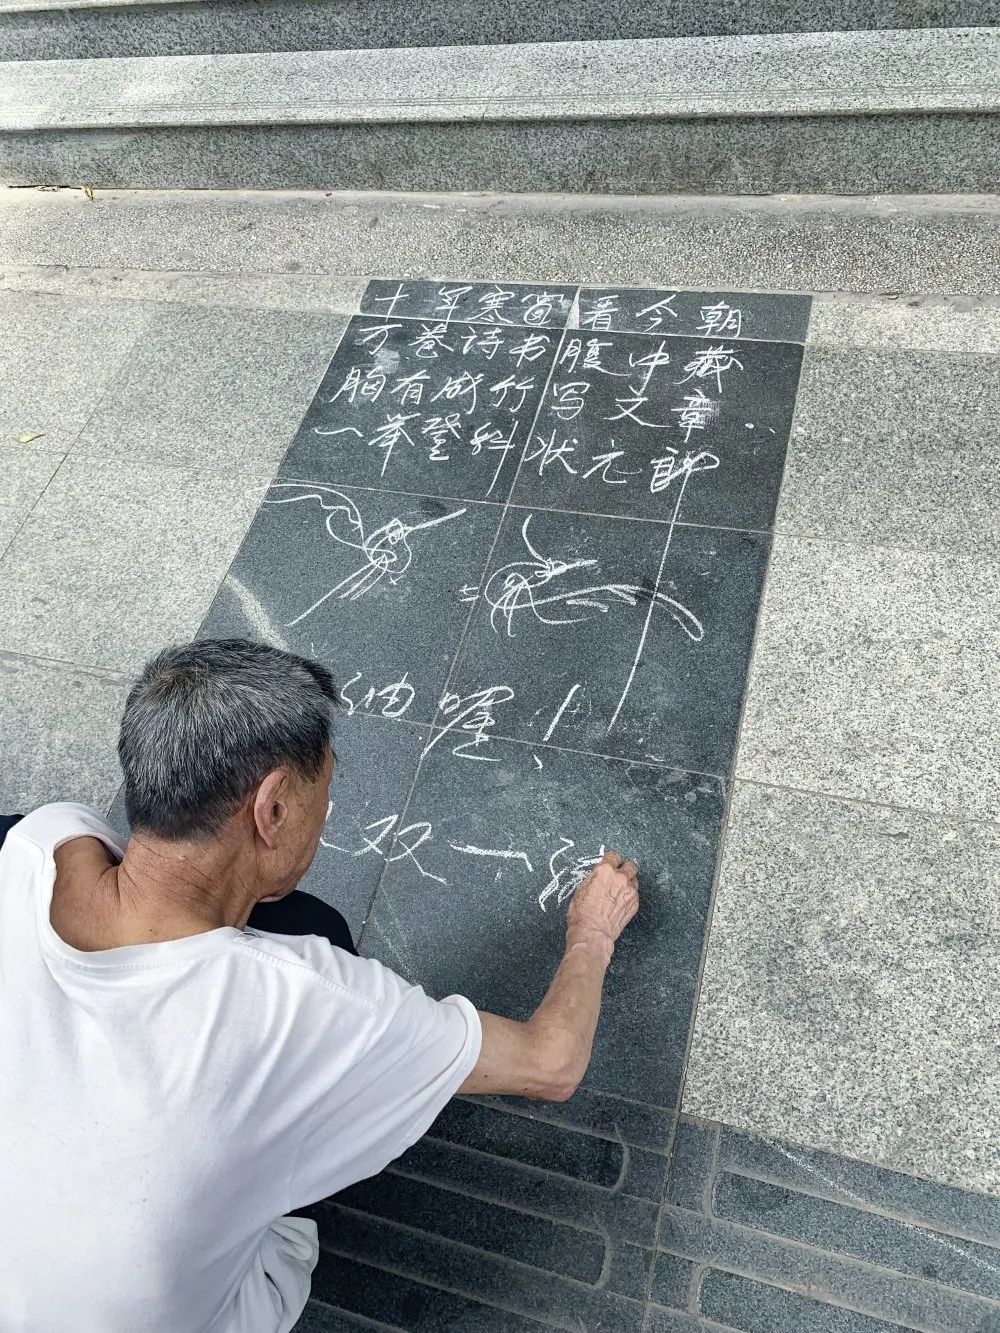 十年寒窗看今朝
万卷诗书腹中藏
胸有成竹写文章..
一举登科状元郎
油喔!
双一